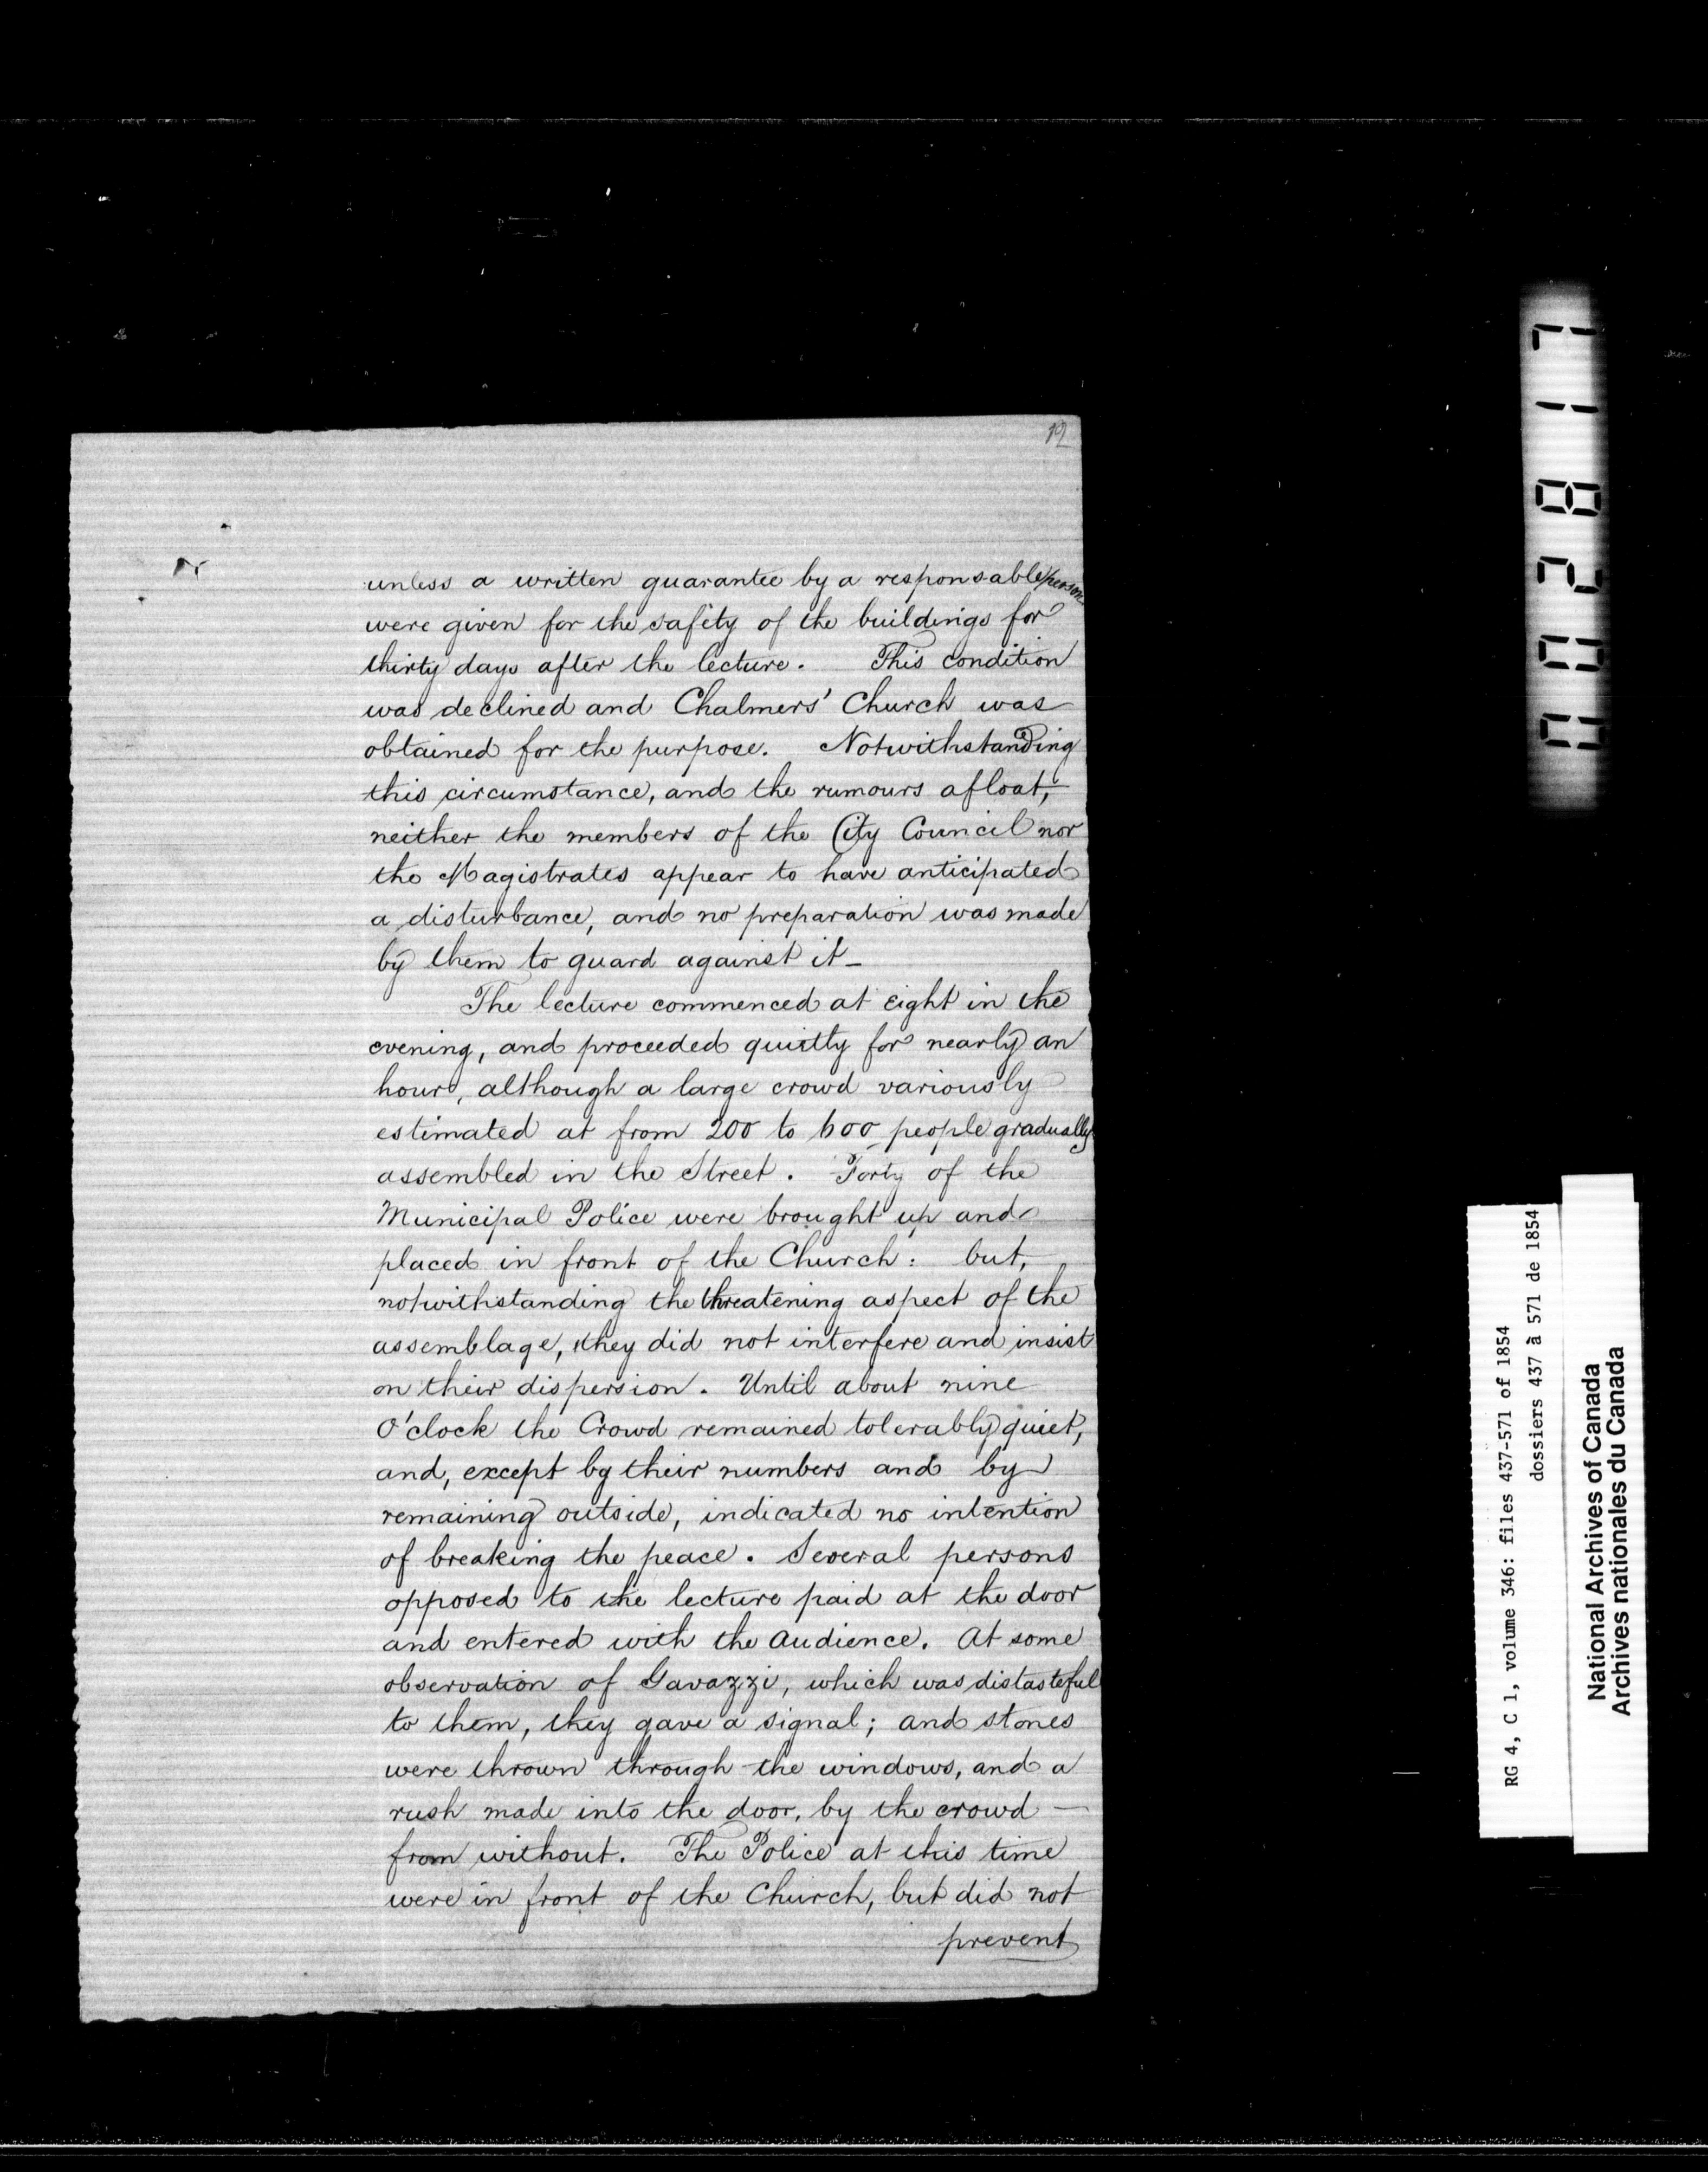 12
unless a written guarantee by a responsable person
were given for the safety of the buildings for
thirty days after the lecture. This condition
was declined and Chalmers' Church was
obtained for the purpose. Notwithstanding
this circumstance, and the rumours afloat,
neither the members of the City Council nor
the Magistrates appear to have anticipated
a disturbance, and no preparation was made
by them to guard against it_
The lecture commenced at eight in the
evening, and proceeded quietly for nearly an
hour, although a large crowd variously
estimated at from 200 to 600 people gradually
assembled in the Street. Forty of the
Municipal Police were brought up and
placed in front of the Church: but,
notwithstanding the threatening aspect of the
assemblage, they did not interfere and insist
on their dispersion. Until about nine
O'clock the Crowd remained tolerably quiet,
and, except by their numbers and by
remaining outside, indicated no intention
of breaking the peace. Several persons
opposed to the lecture paid at the door
and entered with the Audience. At some
observation of Gavazzi, which was distasteful
to them, they gave a signal; and stones
were thrown through the windows, and a
rush made into the door, by the crowd —
from without. The Police at this time
were in front of the Church, but did not
prevent
002817
RG 4, C 1, volume 346: files 437-571 of 1854
dossiers 437 à 571 de 1854
National Archives of Canada
Archives nationales du Canada